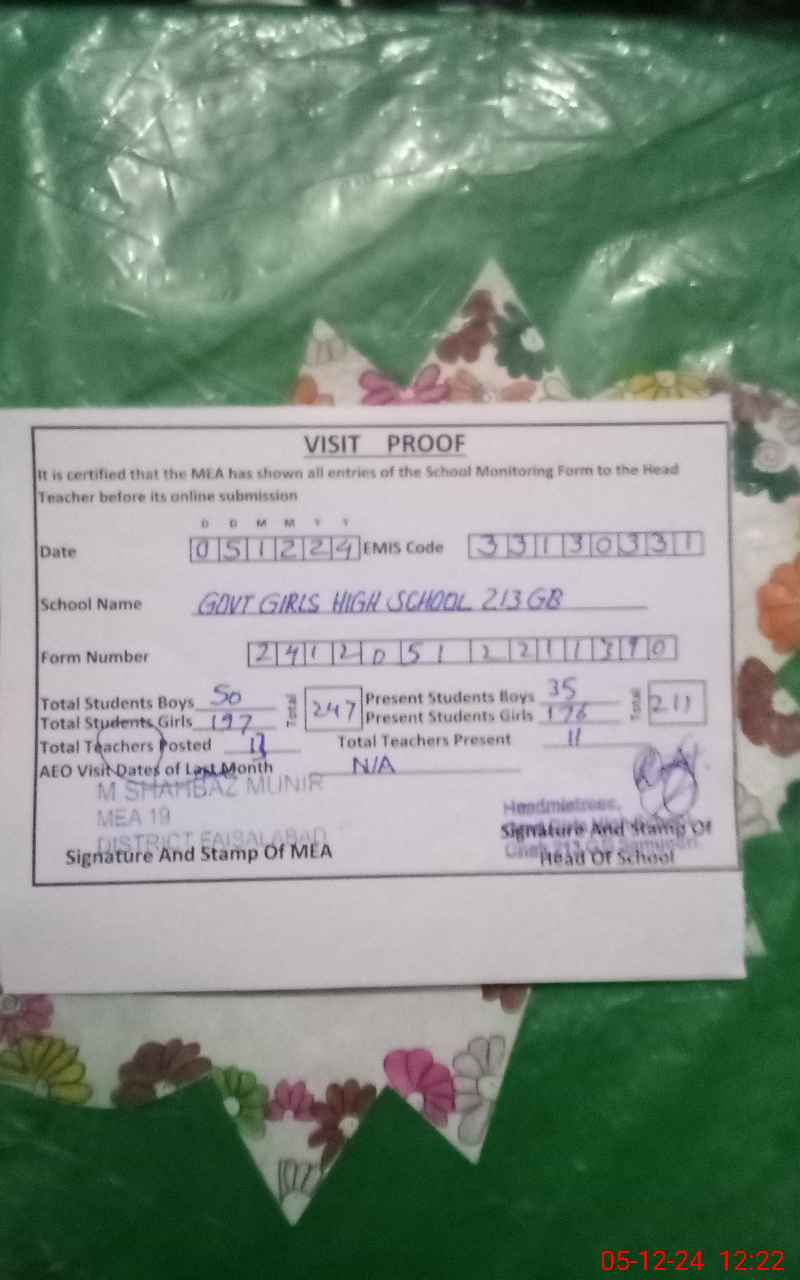 VISIT PROOF
It is certified that the MEA has shown all entries of the School Monitoring Form to the Head
Teacher before its online submission
D D M M Y Y
Date 051224 EMIS Code 33130331
School Name GOVT GIRLS HIGH SCHOOL 213 GB
Form Number
Total Students Boys 50 Total 247 Present Students Boys 35 Total 211
Total Students Girls 197 Present Students Girls 176
Total Teachers Posted Total Teachers Present 11
AEO Visit Dates of Last Month N/A
M SHAHBAZ MUNIR
MEA 19
DISTRICT FAISALABAD
Signature And Stamp Of MEA
Headmistress,
Signature And Stamp Of
Head Of School
05-12-24 12:22